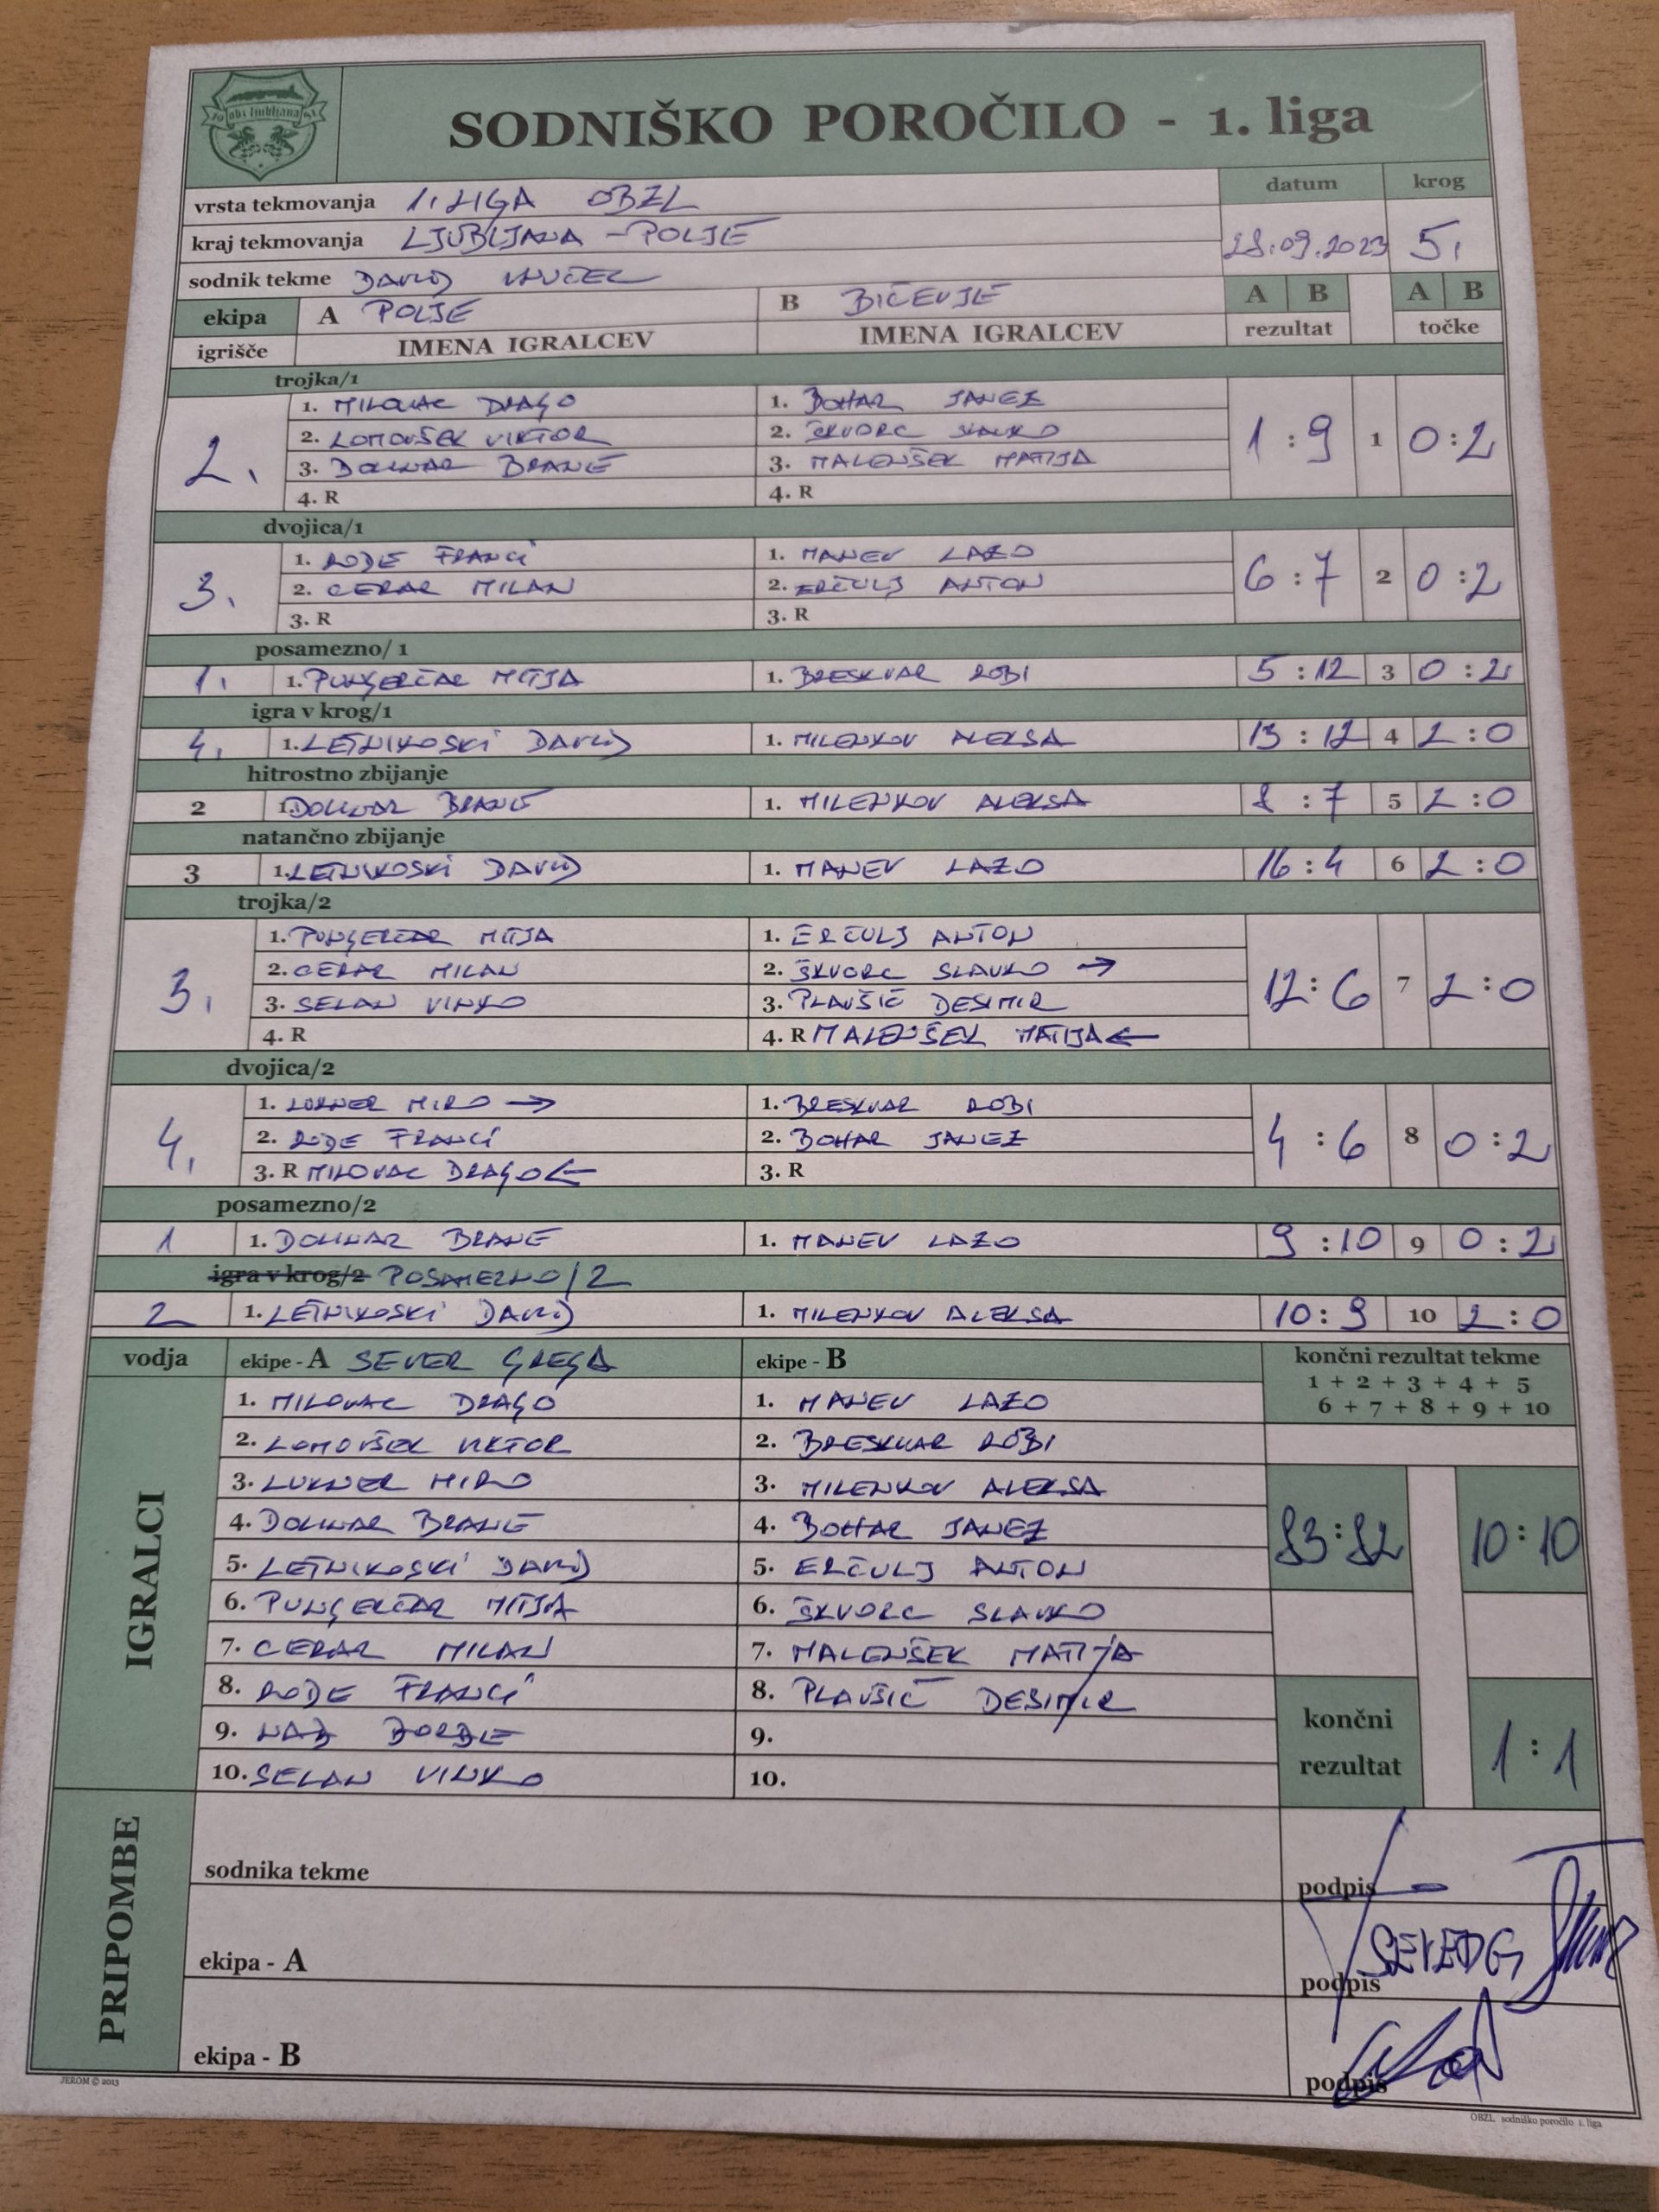 obz ljubljana
SODNIŠKO POROČILO - 1. liga
vrsta tekmovanja 1. LIGA OBZL
datum krog
kraj tekmovanja LJUBLJANA - POLJE
28.09.2023 5.
sodnik tekme DAVID
ekipa A POLJE B BIČEVJE A B A B
igrišče IMENA IGRALCEV IMENA IGRALCEV rezultat točke
trojka/1
2. 1 : 9 1 0 : 2
1. MILOVAC DRAGO 1. BOHAR JANEZ
2. LOMOVŠEK VIKTOR 2. ŠKVORC SLAVKO
3. DOLINAR BRANE 3. MALENŠEK MATIJA
4. R 4. R
dvojica/1
3. 6 : 7 2 0 : 2
1. RODE FRANCI 1. MANEV LAZO
2. CERAR MILAN 2. ERČULJ ANTON
3. R 3. R
posamezno/ 1
1. 1. PUNGERČAR MITJA 1. BRESKVAR ROBI 5 : 12 3 0 : 2
igra v krog/1
4. 1. LETNIKOSKI DAVID 1. MILENKOV ALEKSA 13 : 12 4 2 : 0
hitrostno zbijanje
2 1. DOLINAR BRANE 1. MILENKOV ALEKSA 8 : 7 5 2 : 0
natančno zbijanje
3 1. LETNIKOSKI DAVID 1. MANEV LAZO 16 : 4 6 2 : 0
trojka/2
3. 12 : 6 7 2 : 0
1. PUNGERČAR MITJA 1. ERČULJ ANTON
2. CERAR MILAN 2. ŠKVORC SLAVKO →
3. SELAN VINKO 3. PLAVŠIĆ DESIMIR
4. R 4. R MALENŠEK MATIJA ←
dvojica/2
4. 4 : 6 8 0 : 2
1. LUKNER MIRO → 1. BRESKVAR ROBI
2. RODE FRANCI 2. BOHAR JANEZ
3. R MILOVAC DRAGO ← 3. R
posamezno/2
1 1. DOLINAR BRANE 1. MANEV LAZO 9 : 10 9 0 : 2
igra v krog/2 POSAMEZNO/2
2 1. LETNIKOSKI DAVID 1. MILENKOV ALEKSA 10 : 9 10 2 : 0
vodja ekipe - A SEVER GREGA ekipe - B končni rezultat tekme
1 + 2 + 3 + 4 + 5
6 + 7 + 8 + 9 + 10
IGRALCI
1. MILOVAC DRAGO 1. MANEV LAZO
2. LOMOVŠEK VIKTOR 2. BRESKVAR ROBI
3. LUKNER MIRO 3. MILENKOV ALEKSA
4. DOLINAR BRANE 4. BOHAR JANEZ 83 : 82 10 : 10
5. LETNIKOSKI DAVID 5. ERČULJ ANTON
6. PUNGERČAR MITJA 6. ŠKVORC SLAVKO
7. CERAR MILAN 7. MALENŠEK MATIJA
8. RODE FRANCI 8. PLAVŠIĆ DESIMIR
9. NAĐ ĐORĐE 9.
10. SELAN VINKO 10.
končni
rezultat 1 : 1
PRIPOMBE
sodnika tekme podpis
ekipa - A podpis
ekipa - B podpis
JEROM © 2013
OBZL sodniško poročilo 1. liga